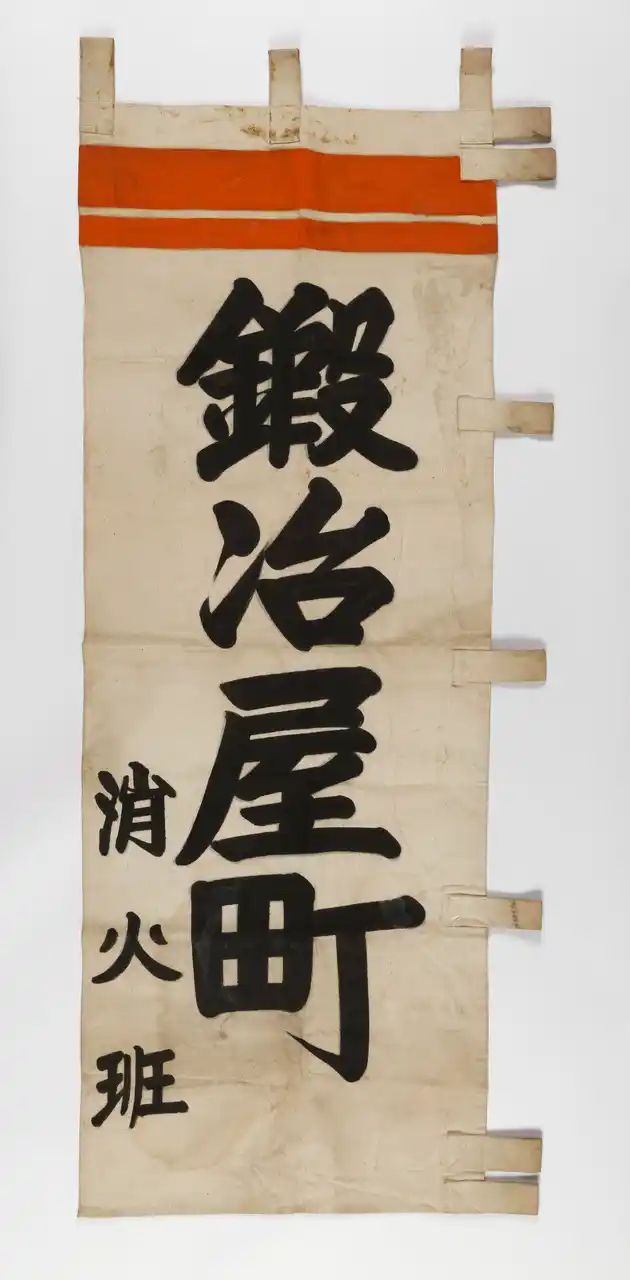 鍛冶屋町
消火班